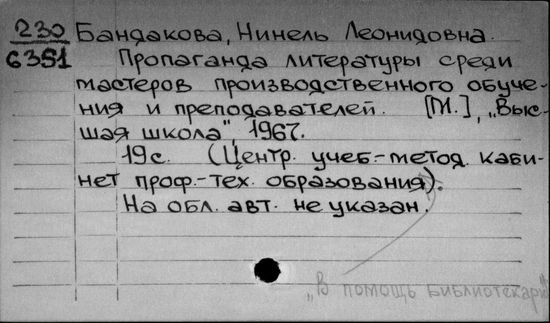 230 Бандакова, Нинель Леонидовна.
6351 Пропаганда литературы среди
мастеров производственного обуче-
ния и преподавателей. [М.], „Выс-
шая школа", 1967.
19с. (Центр. учеб.-метод. каби-
нет проф.-тех. образования).
На обл. авт. не указан.
„В помощь библиотекарю"